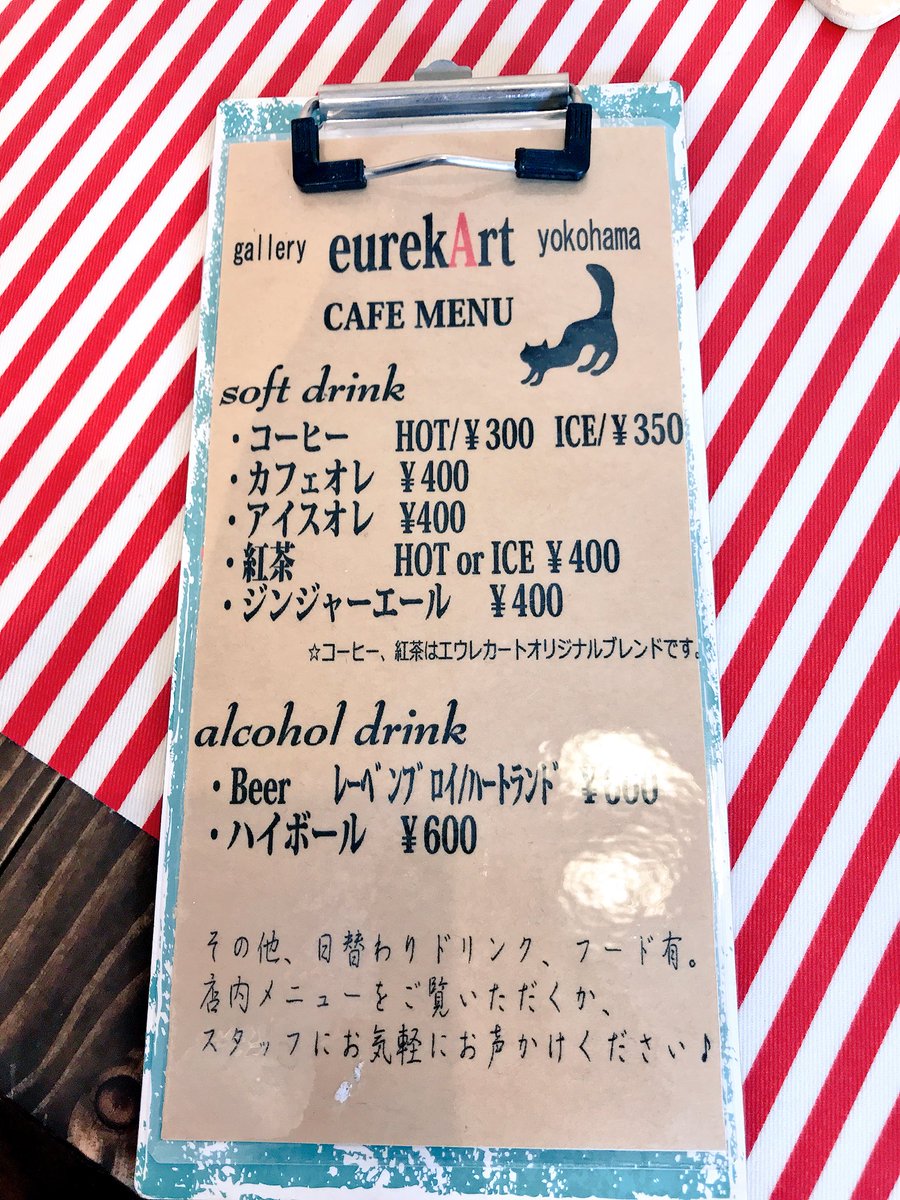 gallery eurekArt yokohama
CAFE MENU
soft drink
・コーヒー HOT/¥300 ICE/¥350
・カフェオレ ¥400
・アイスオレ ¥400
・紅茶 HOT or ICE ¥400
・ジンジャーエール ¥400
☆コーヒー、紅茶はエウレカートオリジナルブレンドです。
alcohol drink
・Beer ﾚｰﾍﾞﾝﾌﾞﾛｲ/ﾊｰﾄﾗﾝﾄﾞ
・ハイボール ¥600
その他、日替わりドリンク、フード有。
店内メニューをご覧いただくか、
スタッフにお気軽にお声かけください♪